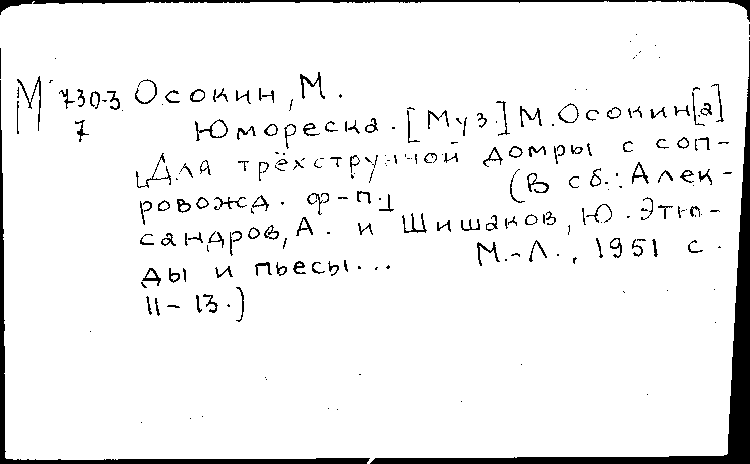 М 730-3 Осокин, М.
7 Юмореска. [Муз.] М. Осокин[а]
[Для трёхструнной домры с соп-
ровожд. ф-п] (В сб.: Алек-
сандров, А. и Шишаков, Ю. Этю-
ды и пьесы... М.-Л., 1951 с.
11-13.)